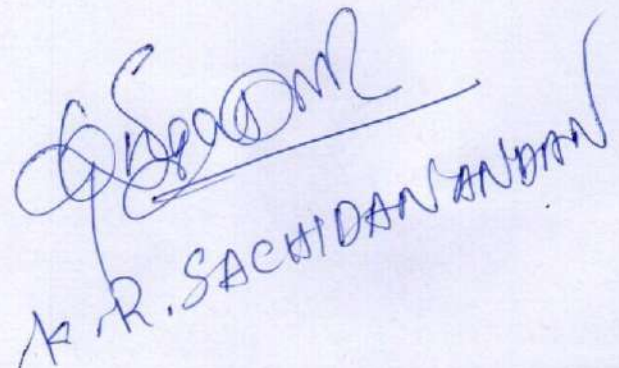 K.R. SACHIDANANDAN